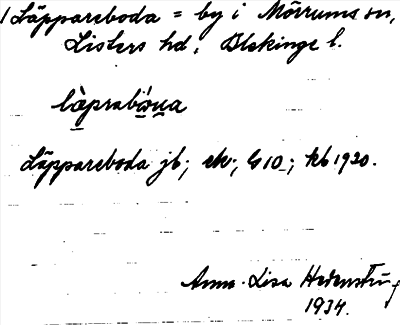 1 Läppareboda = by i Mörrums sn,
Listers hd, Blekinge l.
Läppareboda jb; ek; G10; kb 1920.
Anna-Lisa Hedenström
1934.